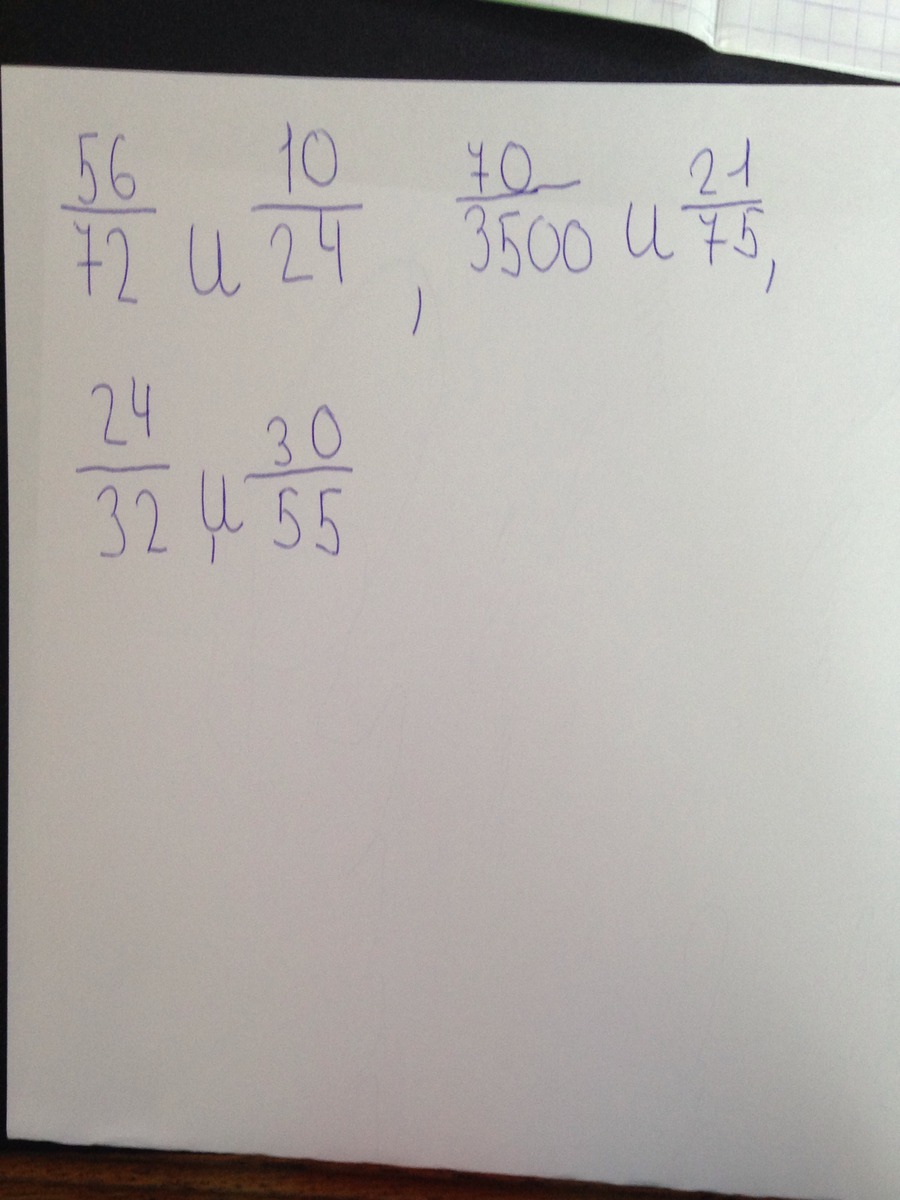 56/72 и 10/24, 70/3500 и 21/75,
24/32 и 30/55